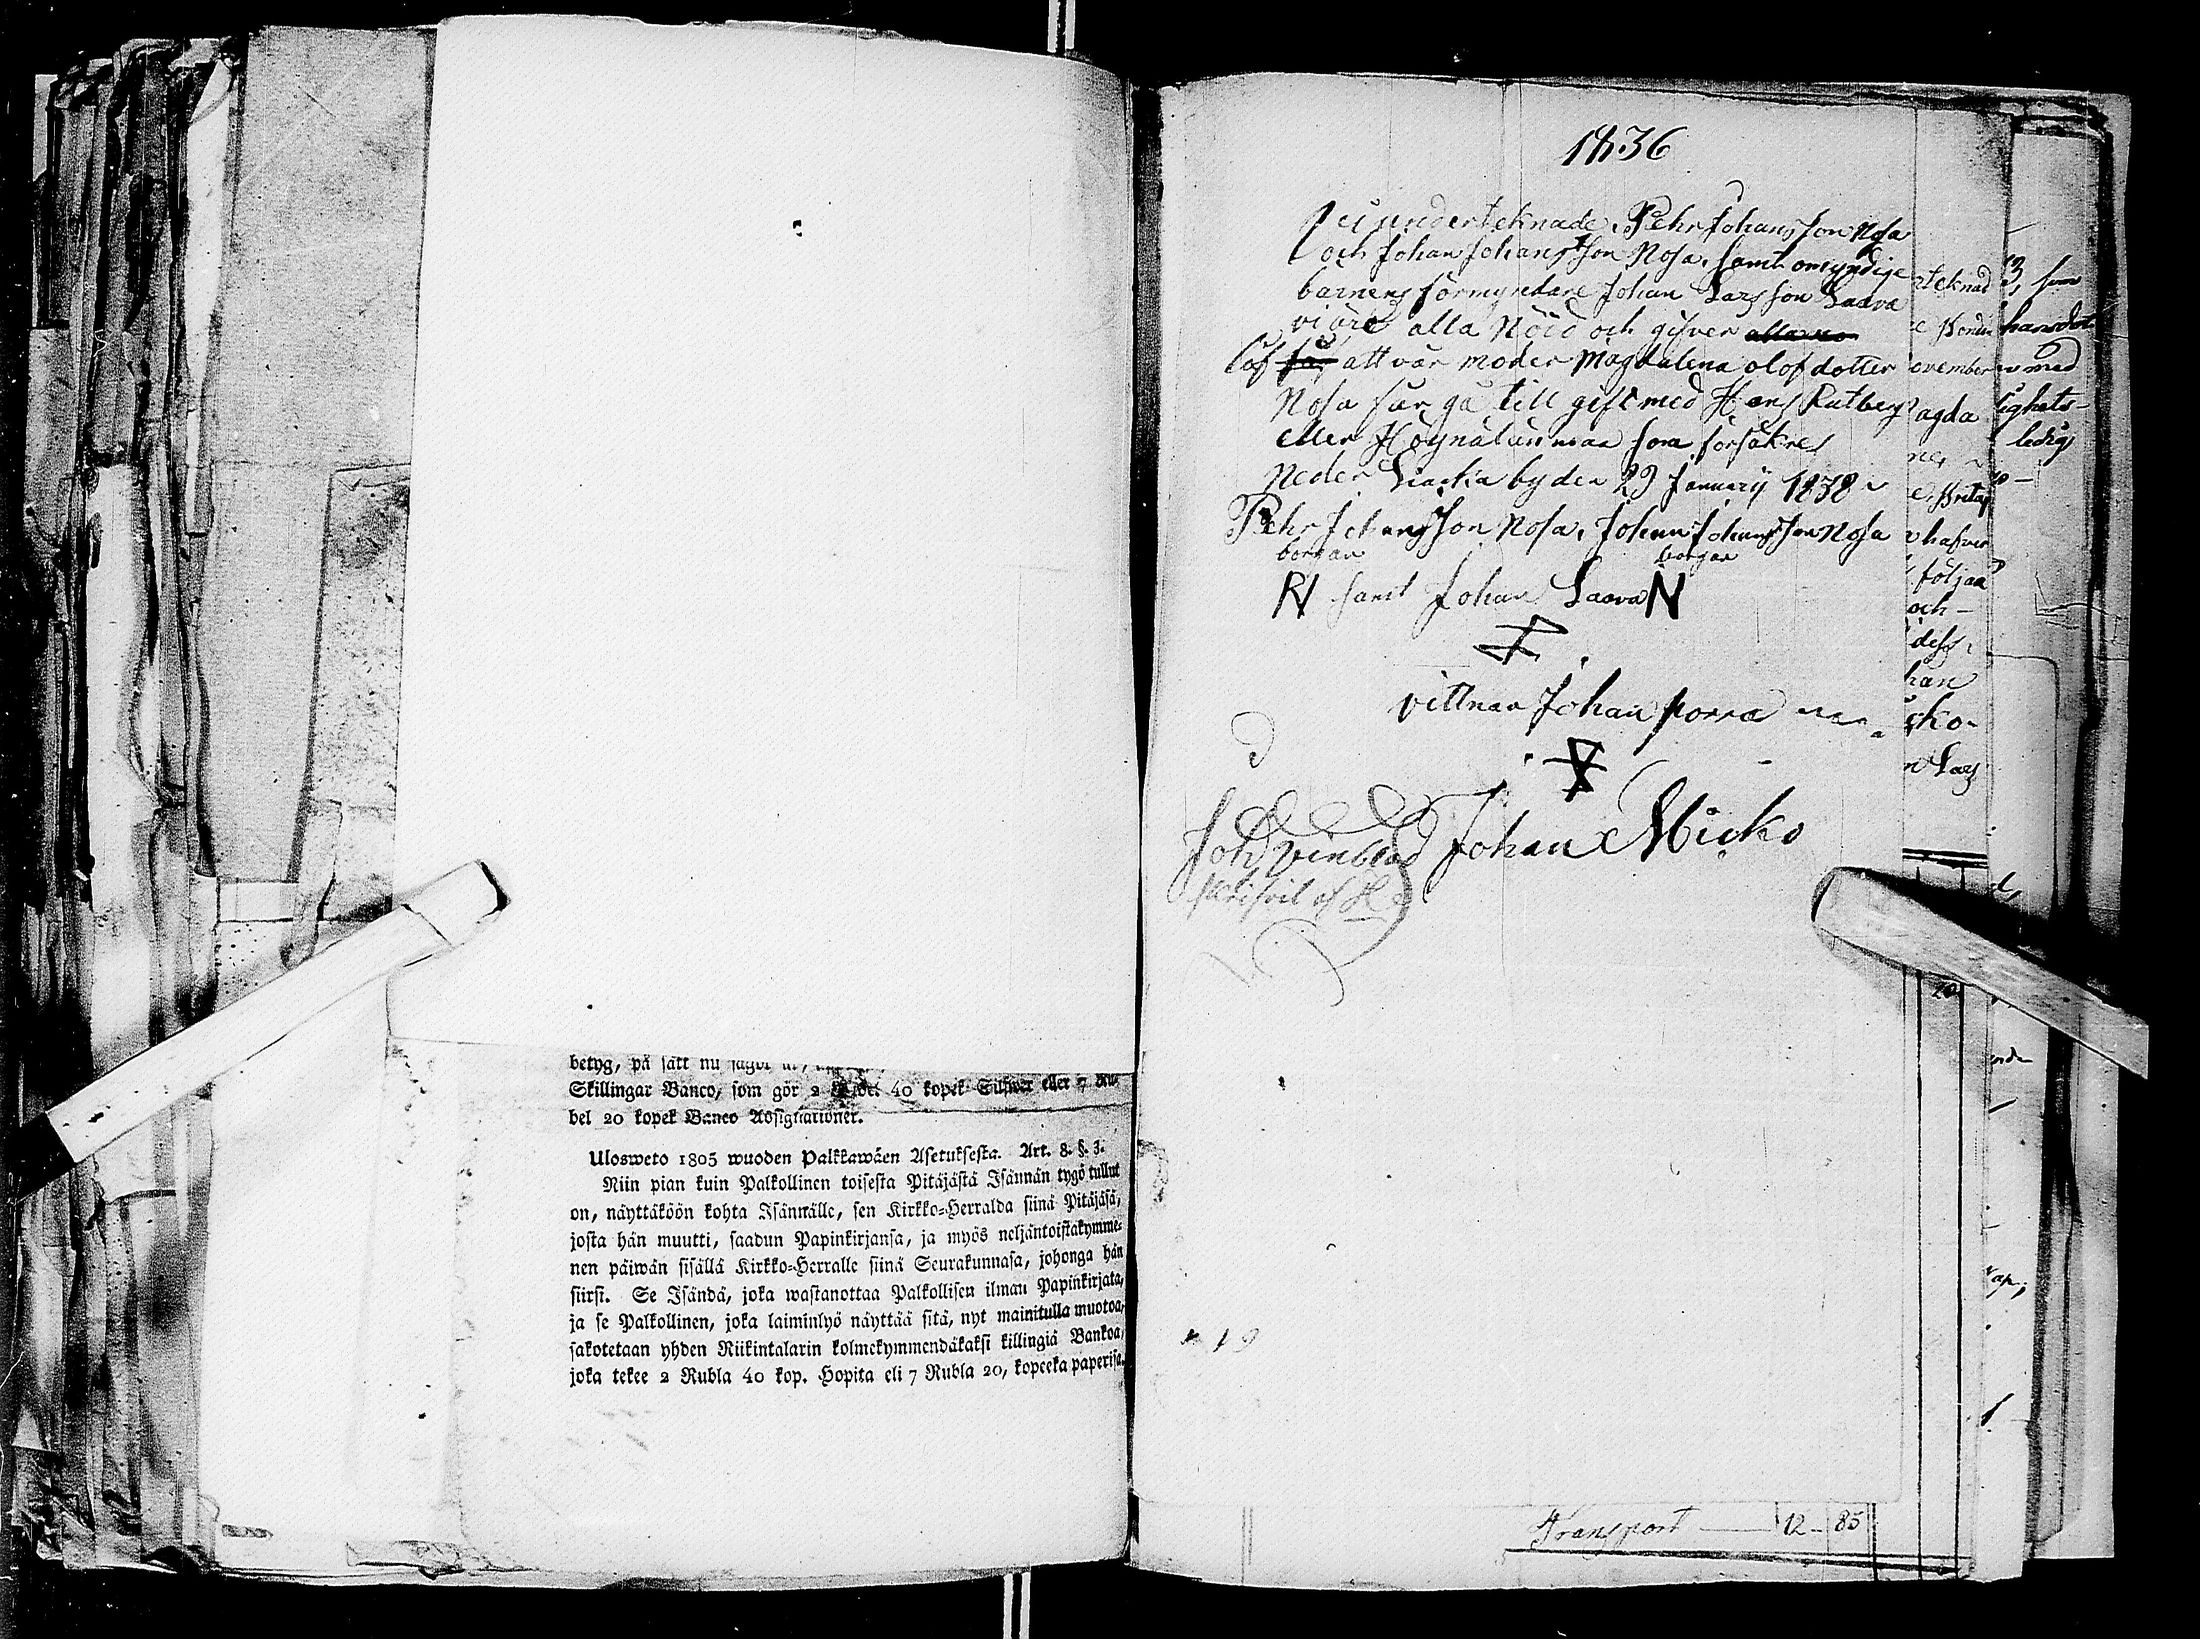 betyg, på sätt nu sagdt är,
Skillingar Banco, som gör 2 40 kopek Silfwer eller 7 Ru-
bel 20 kopek Banco Assignationer.
Ulosweto 1805 wuoden Palkkawäen Asetuksesta. Art. 8. §. 3.
Niin pian kuin Palkollinen toisesta Pitäjästä Isännän tygö tullut
on, näyttäköön kohta Isännälle, sen Kirkko-Herralda siinä Pitäjäsä,
josta hän muutti, saadun Papinkirjansa, ja myös neljäntoistakymme-
nen päiwän sisällä Kirkko-Herralle siinä Seurakunnasa, johonga hän
siirsi. Se Isändä, joka wastanottaa Palkollisen ilman Papinkirjata,
ja se Palkollinen, joka laiminlyö näyttää sitä, nyt mainitulla muotoa,
sakotetaan yhden Riikintalarin kolmekymmendäkaksi killingiä Bankoa,
joka tekee 2 Rubla 40 kop. Hopita eli 7 Rubla 20, kopeeka paperisa.
1836
undertecknade Pehr Johansson Nosa
och Johan Johansson Nosa, samt omyndige
barnens förmyndare Johan Larsson Laava
vi äre alla Nöid och gifver
Låf att vår moder Magdalena olofdotter
Nosa får gå till gift med Hans Rutberg
eller som försäkres
Neder by den 29 January 1838
Pehr Johansson Nosa, Johan Johansson Nosa
borgan borgan
samt Johan Laava N
vittnar Johan porra
Johan Micko
af H
19
teknad
ovember
agda
hafver
följaa
och -
dess,
han
sko-
Lars
som
med
lighets-
ledig
20
Transport 12 - 85